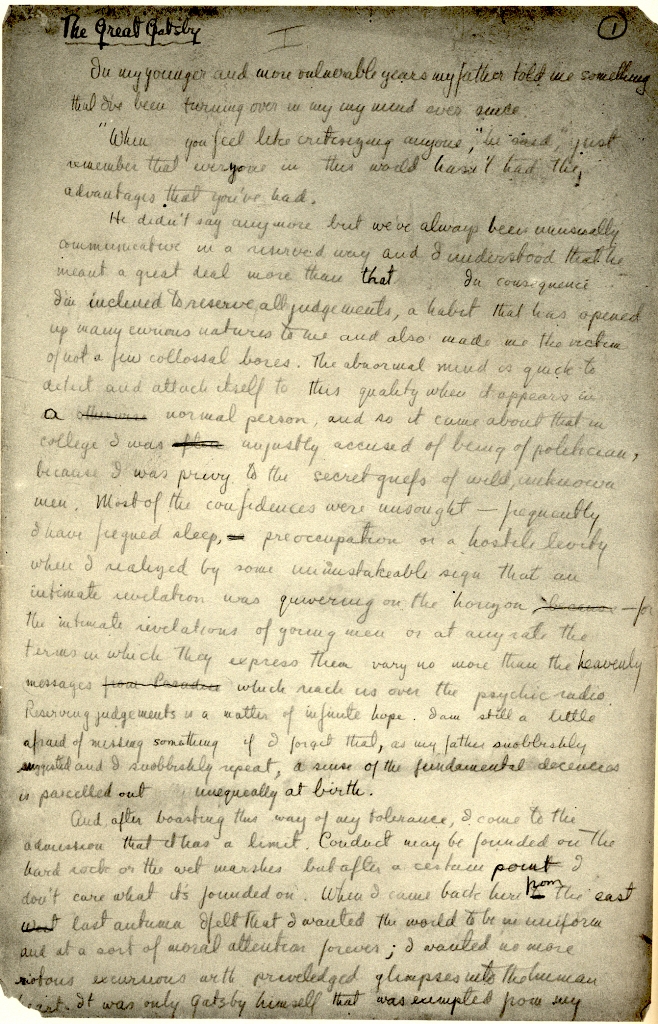 The Great Gatsby
I
1
In my younger and more vulnerable years my father told me something
that I've been turning over in my my mind ever since.
"When you feel like critisizing anyone," he said, "just
remember that everyone in this world hasn't had the
advantages that you've had.
He didn't say anymore but we've always been unusually
communicative in a reserved way and I understood that he
meant a great deal more than that In consequence
I'm inclined to reserve all judgements, a habit that has opened
up many curious natures to me and also made me the victim
of not a few collossal bores. The abnormal mind is quick to
detect and attach itself to this quality when it appears in
a otherwise normal person, and so it came about that in
college I was unjustly accused of being of politician,
because I was privy to the secret griefs of wild, unknown
men. Most of the confidences were unsought — frequently
I have feigned sleep, preoccupation or a hostile levity
when I realized by some unmistakeable sign that an
intimate revelation was quivering on the horizon because — for
the intimate revelations of young men or at any rate the
terms in which they express them vary no more than the heavenly
messages from Pasadena which reach us over the psychic radio.
Reserving judgements is a matter of infinite hope. I am still a little
afraid of missing something if I forget that, as my father snobbishly
suggested and I snobbishly repeat, a sense of the fundamental decencies
is parcelled out unequally at birth.
And after boasting this way of my tolerance, I come to the
admission that it has a limit. Conduct may be founded on the
hard rock or the wet marshes but after a certain point I
don't care what it's founded on. When I came back here from the east
west last autumn I felt that I wanted the world to be in uniform
and at a sort of moral attention forever; I wanted no more
riotous excursions with priveledged glimpses into the human
heart. It was only Gatsby himself that was exempted from my